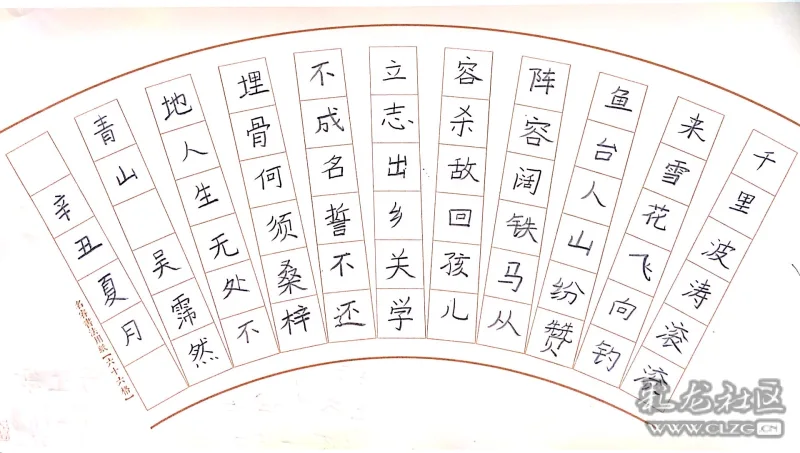 千里波涛滚滚
来雪花飞向钓
鱼台人山纷赞
阵容阔铁马从
容杀敌回孩儿
立志出乡关学
不成名誓不还
埋骨何须桑梓
地人生无处不
青山 吴霈然
辛丑夏月
名家書法用紙【六十六格】
龙社区
WWW.CLZG.CN